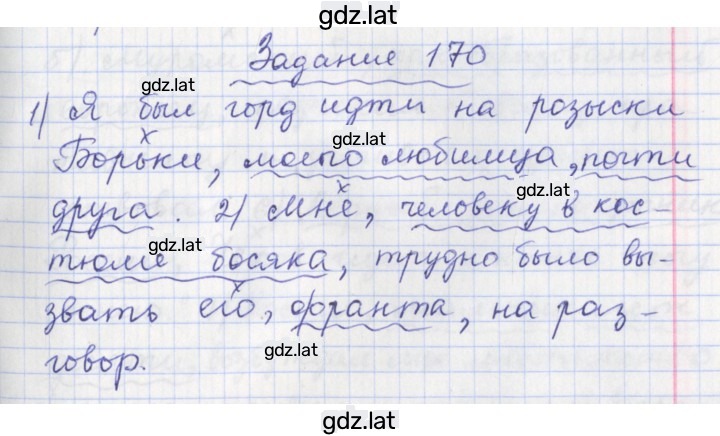 gdz.lat
Задание 170
gdz.lat
1) Я был горд идти на розыски
gdz.lat
Борьки, моего любимца, почти
gdz.lat
друга. 2) Мне, человеку в кос-
gdz.lat
тюме босяка, трудно было вы-
звать его, франта, на раз-
gdz.lat
говор.
gdz.lat